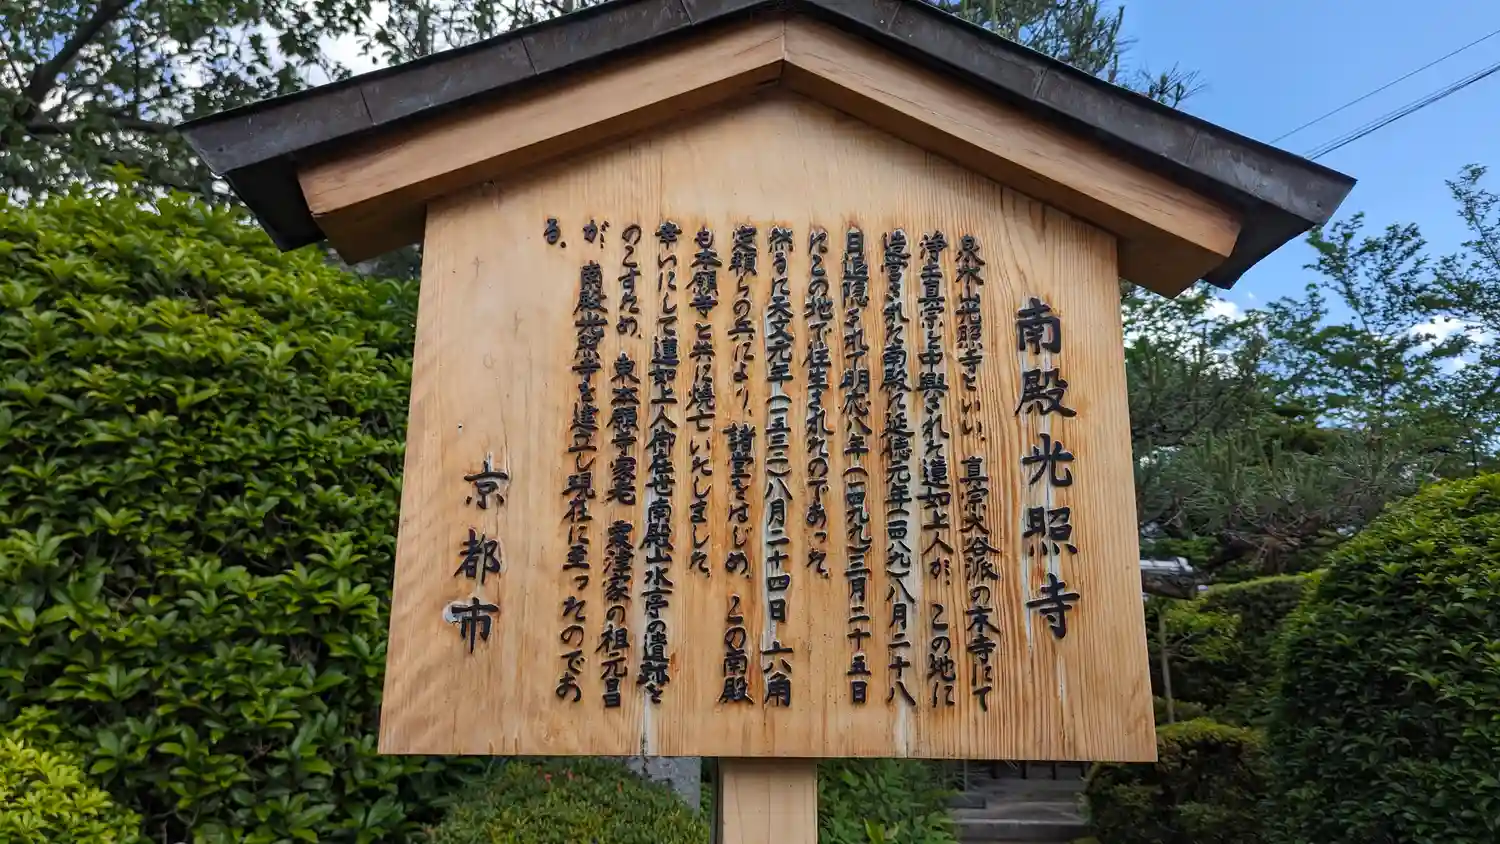 南殿光照寺
泉水山光照寺といい、真宗大谷派の末寺にて
浄土真宗を中興された蓮如上人が、この地に
造営された南殿に延徳元年(一四八九)八月二十八
日退隠されて明応八年(一四九九)三月二十五日
にこの地で往生されたのであった。
然るに天文元年(一五三二)八月二十四日、六角
定頼らの兵により、諸堂をはじめ、この南殿
も本願寺と共に焼亡いたしました。
幸いにして蓮如上人御在世南殿山水亭の遺跡を
のこすため、東本願寺家老 粟津家の祖元昌
が、南殿光照寺を建立し現在に至ったのであ
る。
京都市